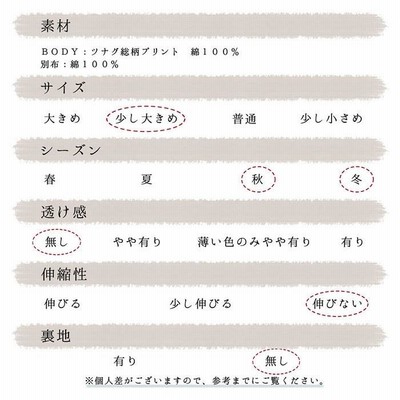 素材
BODY：ツナグ総柄プリント 綿100%
別布：綿100%
サイズ
大きめ 少し大きめ 普通 少し小さめ
シーズン
春 夏 秋 冬
透け感
無し やや有り 薄い色のみやや有り 有り
伸縮性
伸びる 少し伸びる 伸びない
裏地
有り 無し
※個人差がございますので、参考までにご覧ください。